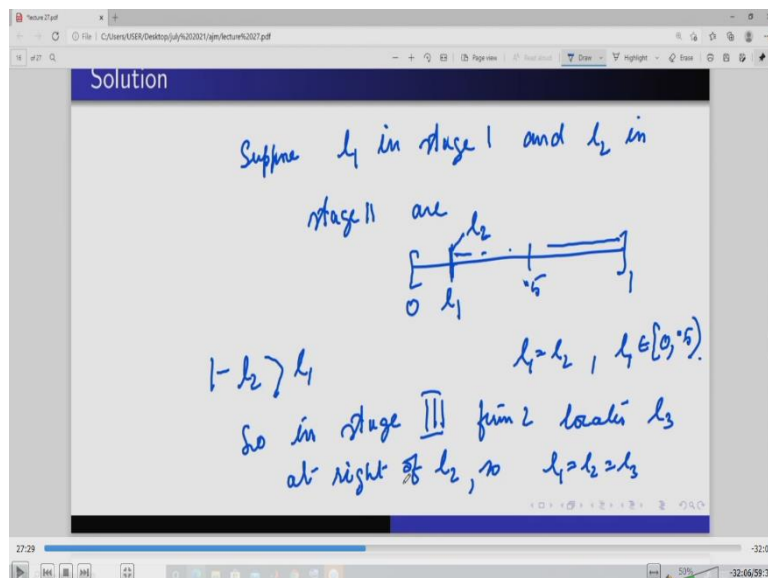 lecture 27.pdf
File | C:/Users/USER/Desktop/july%202021/ajm/lecture%2027.pdf
18 of 27 Page view Read aloud Draw Highlight Erase
Solution
Suppose l₁ in stage I and l₂ in
stage II are
l₂
0 l₁ .5 1
l₁=l₂, l₁∈[0,.5).
1-l₂ > l₁
So in stage III firm 2 locates l₃
at right of l₂, so l₁=l₂=l₃
27:29 -32:0
50% -32:06/59:3